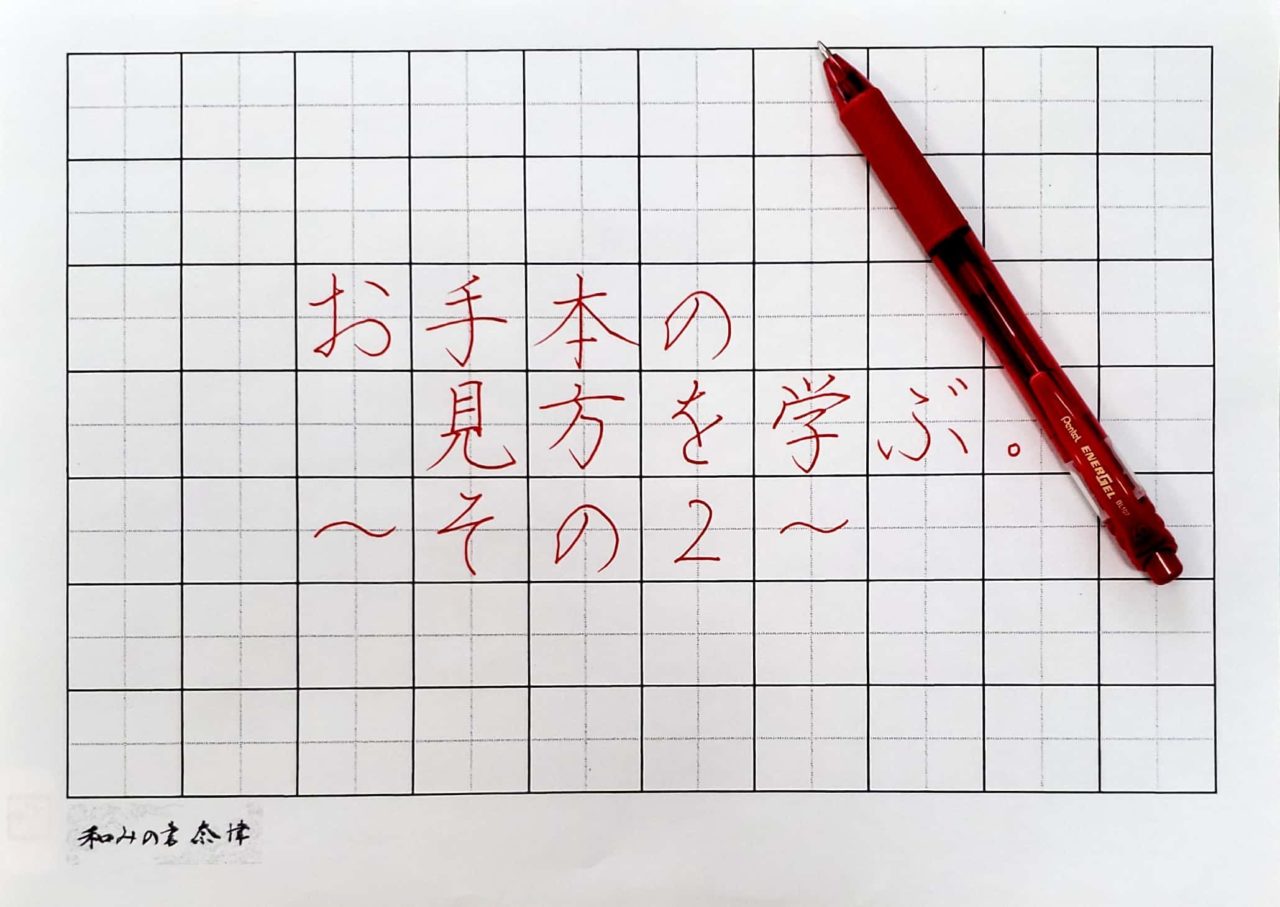 お手本の
見方を学ぶ。
～その2～
Pentel ENERGEL BL107
和みの書 奈津